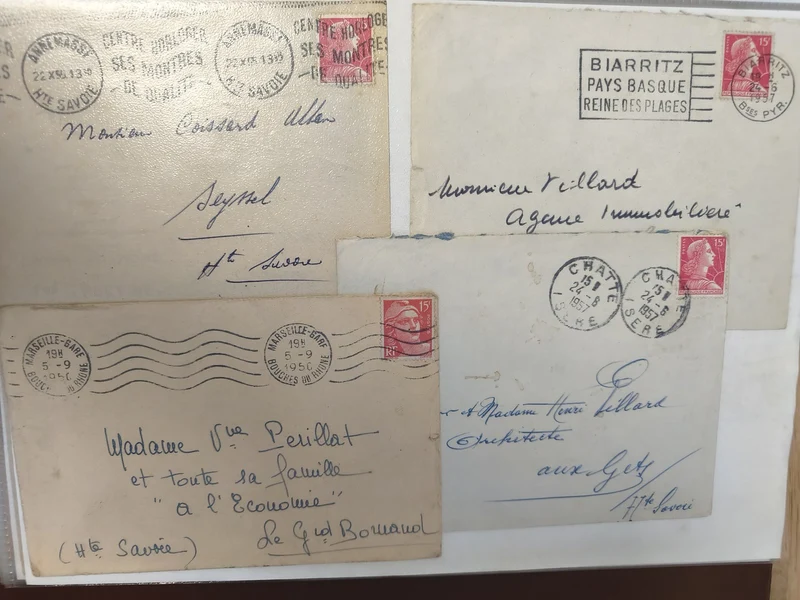 ANNEMASSE
22 X
HTE SAVOIE
CENTRE HORLOGER
SES MONTRES
DE QUALITE
ANNEMASSE
22 X
HTE SAVOIE
CENTRE HORLOGER
SES MONTRES
DE QUALITE
Monsieur Coissard
Seyssel
Hte Savoie
BIARRITZ
PAYS BASQUE
REINE DES PLAGES
15F
BIARRITZ
24-6
1957
BSES PYR.
Monsieur Villard
Agence Immobilière
CHATTE
15H
24-6
1957
ISERE
CHATTE
15H
24-6
1957
ISERE
15F
et Madame Henri Villard
Architecte
aux Gets
Hte Savoie
MARSEILLE-GARE
19H
5-9
BOUCHES DU RHONE
MARSEILLE-GARE
19H
5-9
1950
BOUCHES DU RHONE
15F
RF
Madame Vve Perillat
et toute sa famille
"à l'Economie"
Le Gd Bornand
(Hte Savoie)